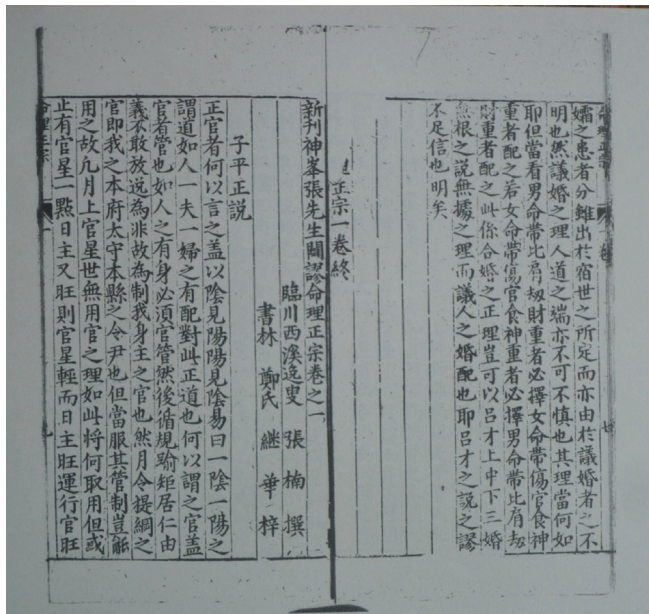 命理正宗
孀之患者分雖出於宿世之所定而亦由於議婚者之不
明也然議婚之理人道之端亦不可不慎也其理當何如
耶但當看男命帶比肩刼財重者必擇女命帶傷官食神
重者配之若女命帶傷官食神重者必擇男命帶比肩刼
財重者配之此係合婚之正理豈可以呂才上中下三婚
無根之說無據之理而議人之婚配也耶呂才之說之謬
不足信也明矣
正宗一卷終
新刊神峯張先生闢謬命理正宗卷之一
臨川西溪逸叟 張楠 撰
書林 鄭氏 繼華 梓
子平正說
正官者何以言之盖以陰見陽陽見陰易曰一陰一陽之
謂道如人一夫一婦之有配對此正道也何以謂之官盖
官者管也如人之有身必須官管然後循規踰矩居仁由
義不敢放逸為非故為制我身主之官也然月令提綱之
官即我之本府太守本縣之令尹也但當服其管制豈能
用之故凢月上官星世無用官之理如此將何取用但或
止有官星一點日主又旺則官星輕而日主旺運行官旺
命理正宗